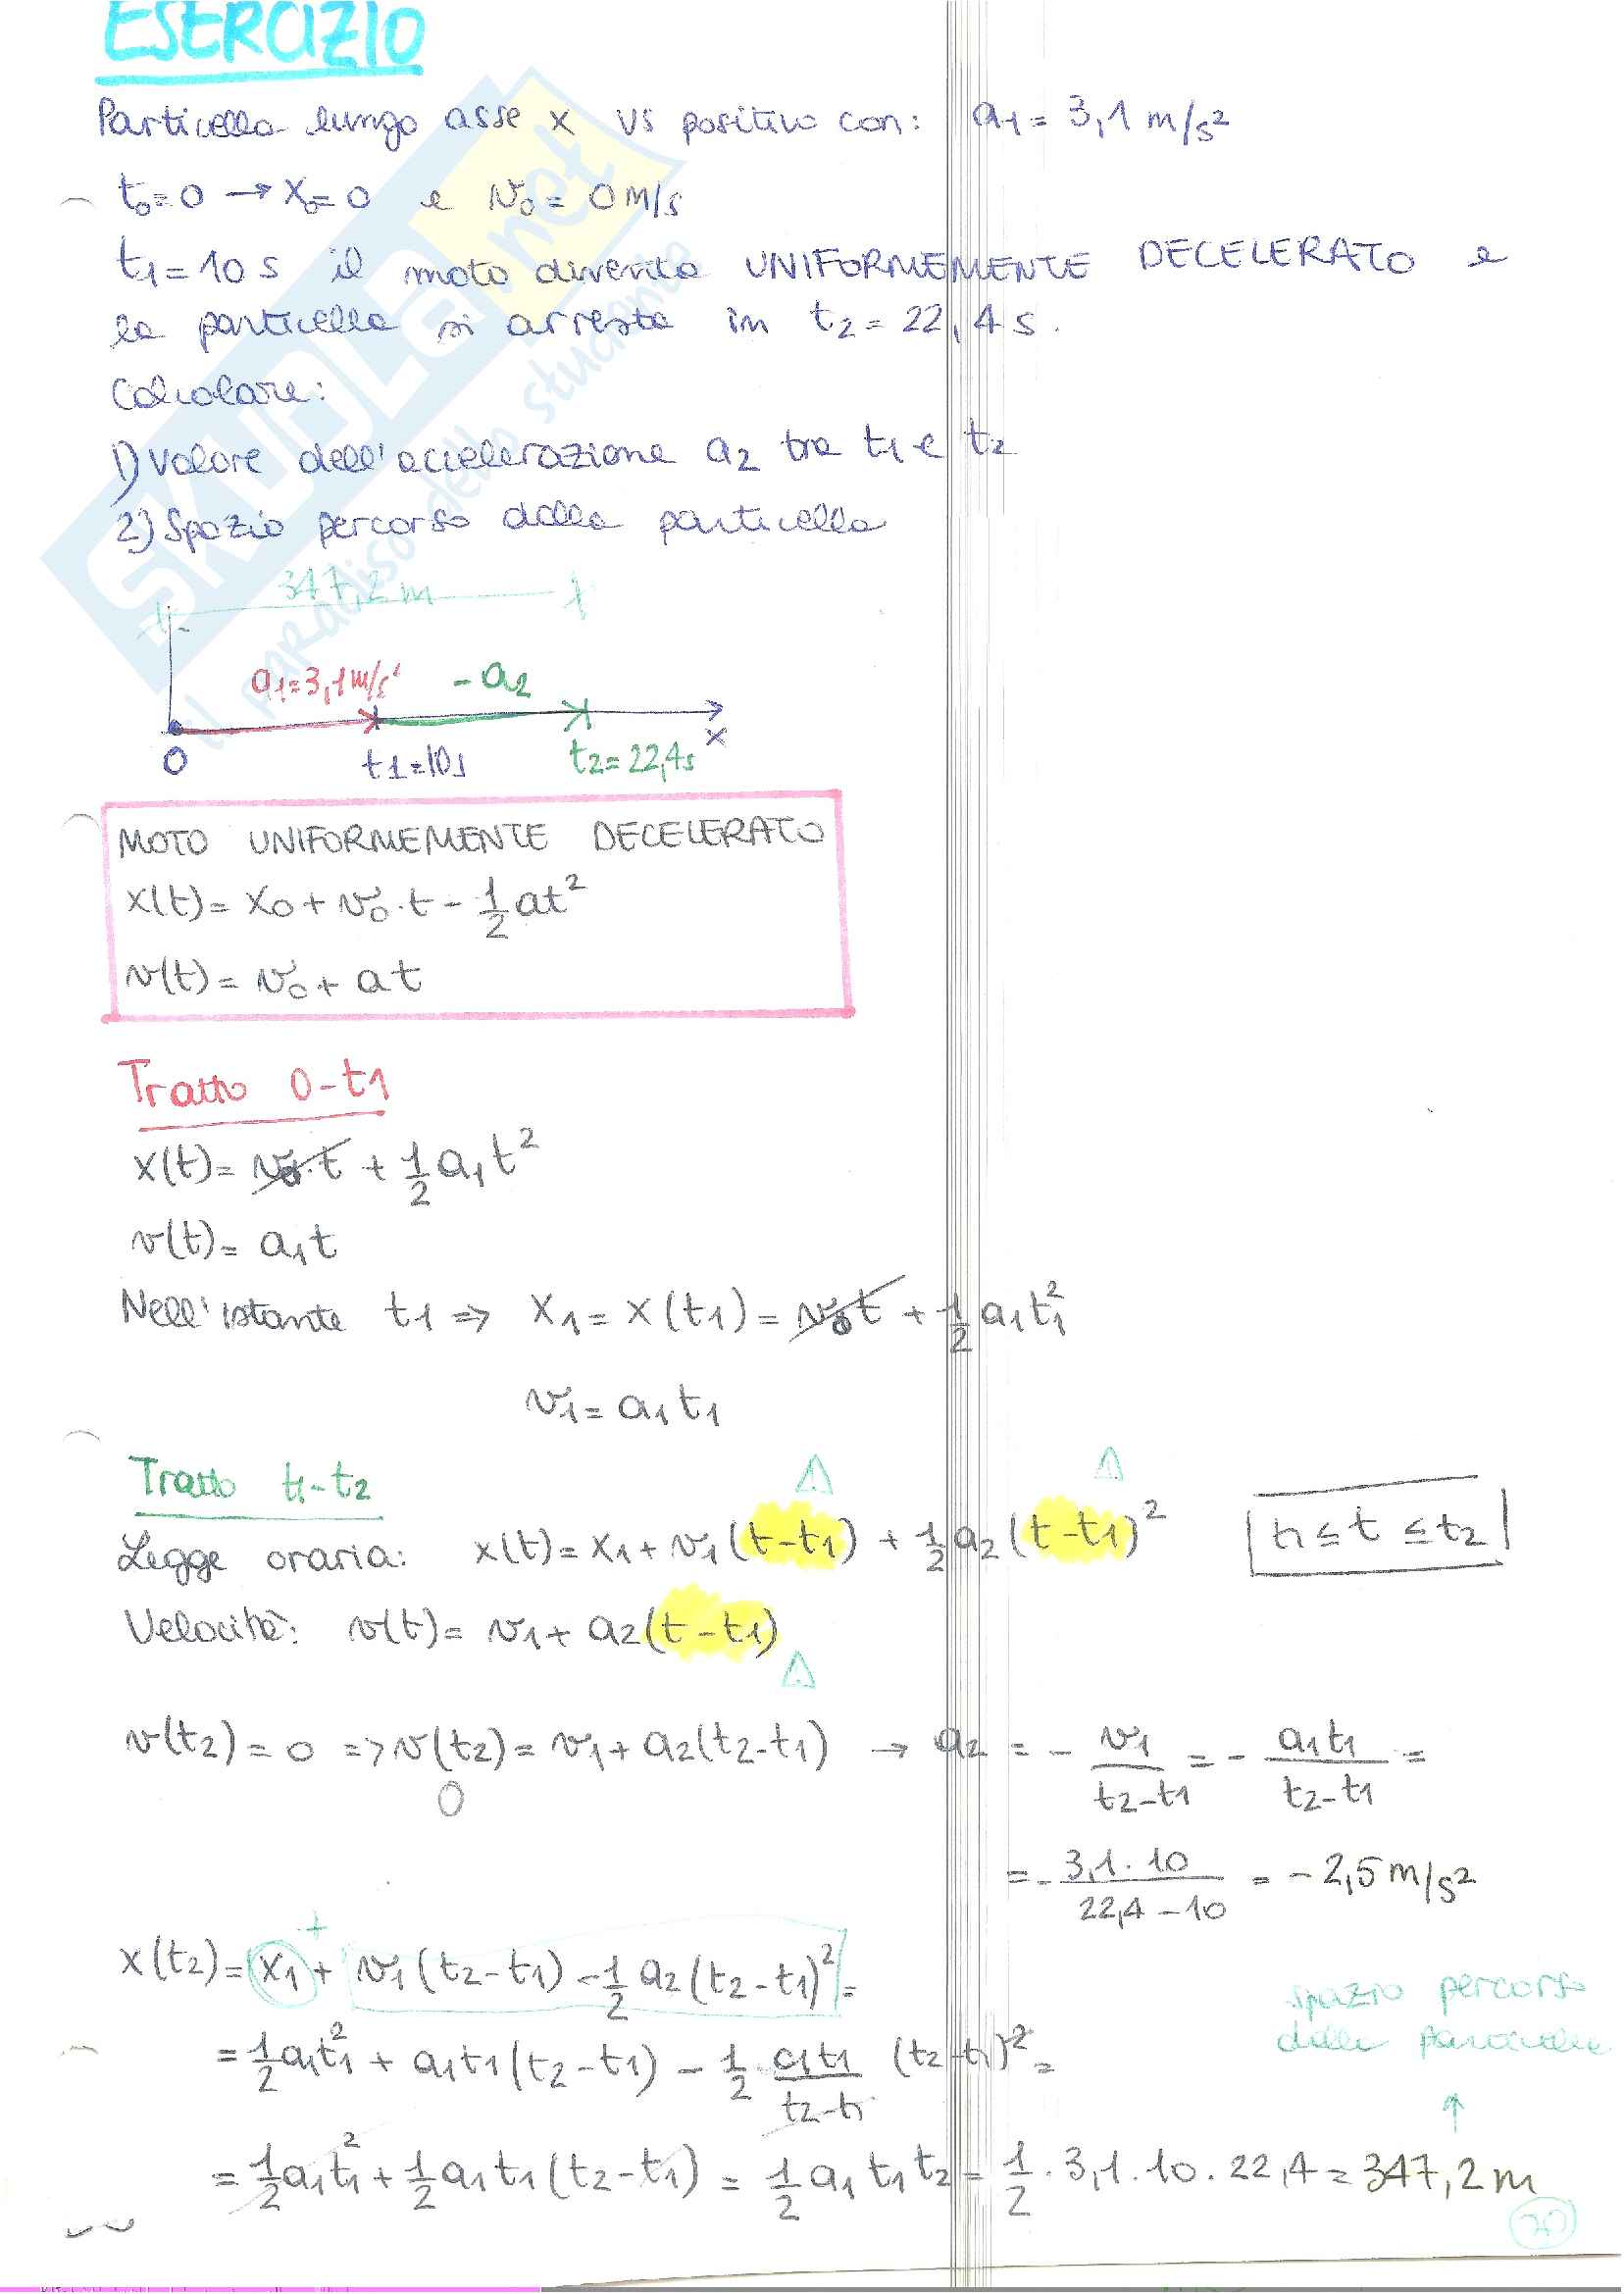 ESERCIZIO
Particella lungo asse x vs positivo con: a1 = 3,1 m/s²
t0=0 → x0=0 e v0= 0 m/s
t1=10 s il moto diventa UNIFORMEMENTE DECELERATO e
la particella si arresta in t2= 22,4 s.
Calcolare:
1) Valore dell'accelerazione a2 tra t1 e t2
2) Spazio percorso dalla particella
347,2 m
a1=3,1 m/s² -a2
0 t1=10s t2=22,4s x
MOTO UNIFORMEMENTE DECELERATO
x(t)= x0 + v0·t - 1/2 at²
v(t)= v0 + at
Tratto 0-t1
x(t)= v0·t + 1/2 a1t²
v(t)= a1t
Nell'istante t1 ⇒ x1= x(t1)= v0t + 1/2 a1t1²
v1= a1t1
Tratto t1-t2
Legge oraria: x(t)= x1 + v1(t-t1) + 1/2 a2(t-t1)² t1≤t≤t2
Velocità: v(t)= v1+ a2(t-t1)
v(t2)=0 => v(t2)= v1+ a2(t2-t1) → a2 = - v1/(t2-t1) = - a1t1/(t2-t1) =
0
= - 3,1·10/(22,4-10) = -2,5 m/s²
x(t2)= x1 + v1(t2-t1) - 1/2 a2(t2-t1)² =
+
= 1/2 a1t1² + a1t1(t2-t1) - 1/2 a1t1/(t2-t1) (t2-t1)² =
spazio percorso
dalla particella
↑
= 1/2 a1t1² + 1/2 a1t1(t2-t1) = 1/2 a1t1t2 = 1/2 · 3,1 · 10 · 22,4 = 347,2 m
SKUOLA.net
il paradiso dello studente